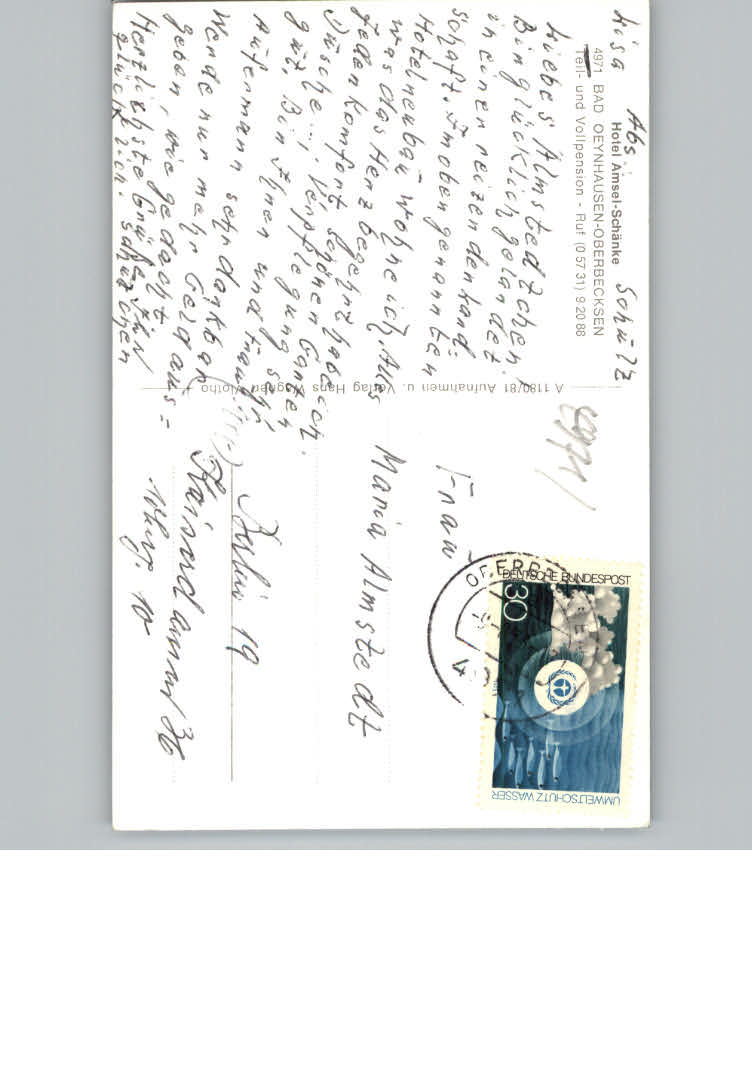 Abs.:
Lisa Schulz
Hotel Amsel-Schänke
4971 BAD OEYNHAUSEN-OBERBECKSEN
Teil- und Vollpension - Ruf (0 57 31) 9 20 88
Liebes Almstedtchen!
Bin glücklich gelandet
in einer reizenden Land=
schaft. Im obengenannten
Hotelneubau wohne ich. Alles
was das Herz begehrt habe ich.
Jeden Komfort, schönen Garten
Dusche..! Verpflegung sehr
gut. Bin Ihnen und Frau
Aufermann sehr dankbar
Werde nur mehr Geld aus=
geben, wie gedacht.
Herzlichste Grüße Ihr
glückliches Schulzchen
A 1180/81 Aufnahmen u. Verlag Hans Wagner, Vlotho
4971
Frau
Maria Almstedt
Berlin 19
Kaiserdamm 36
DEUTSCHE BUNDESPOST
30
UMWELTSCHUTZ WASSER